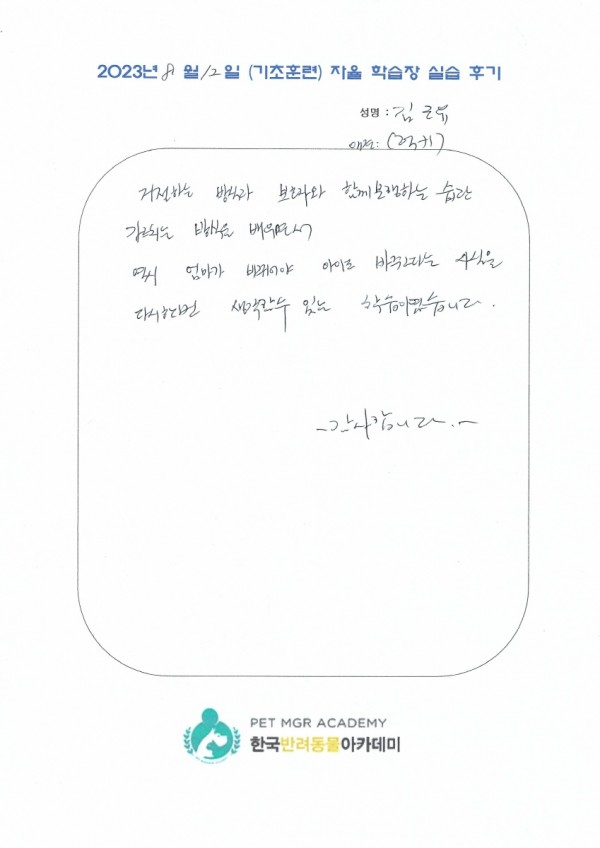 2023년 8월 12일 (기초훈련) 자율 학습장 실습 후기
성명 : 김
애견: (
하는 방식과 보호자와 함께 하는 습관
방식을 배우면서
역시 엄마가 바뀌어야 아이도 바뀐다는 사실을
다시한번 생각할수 있는 학습이였습니다.
~감사합니다.~
PET MGR ACADEMY
한국반려동물아카데미